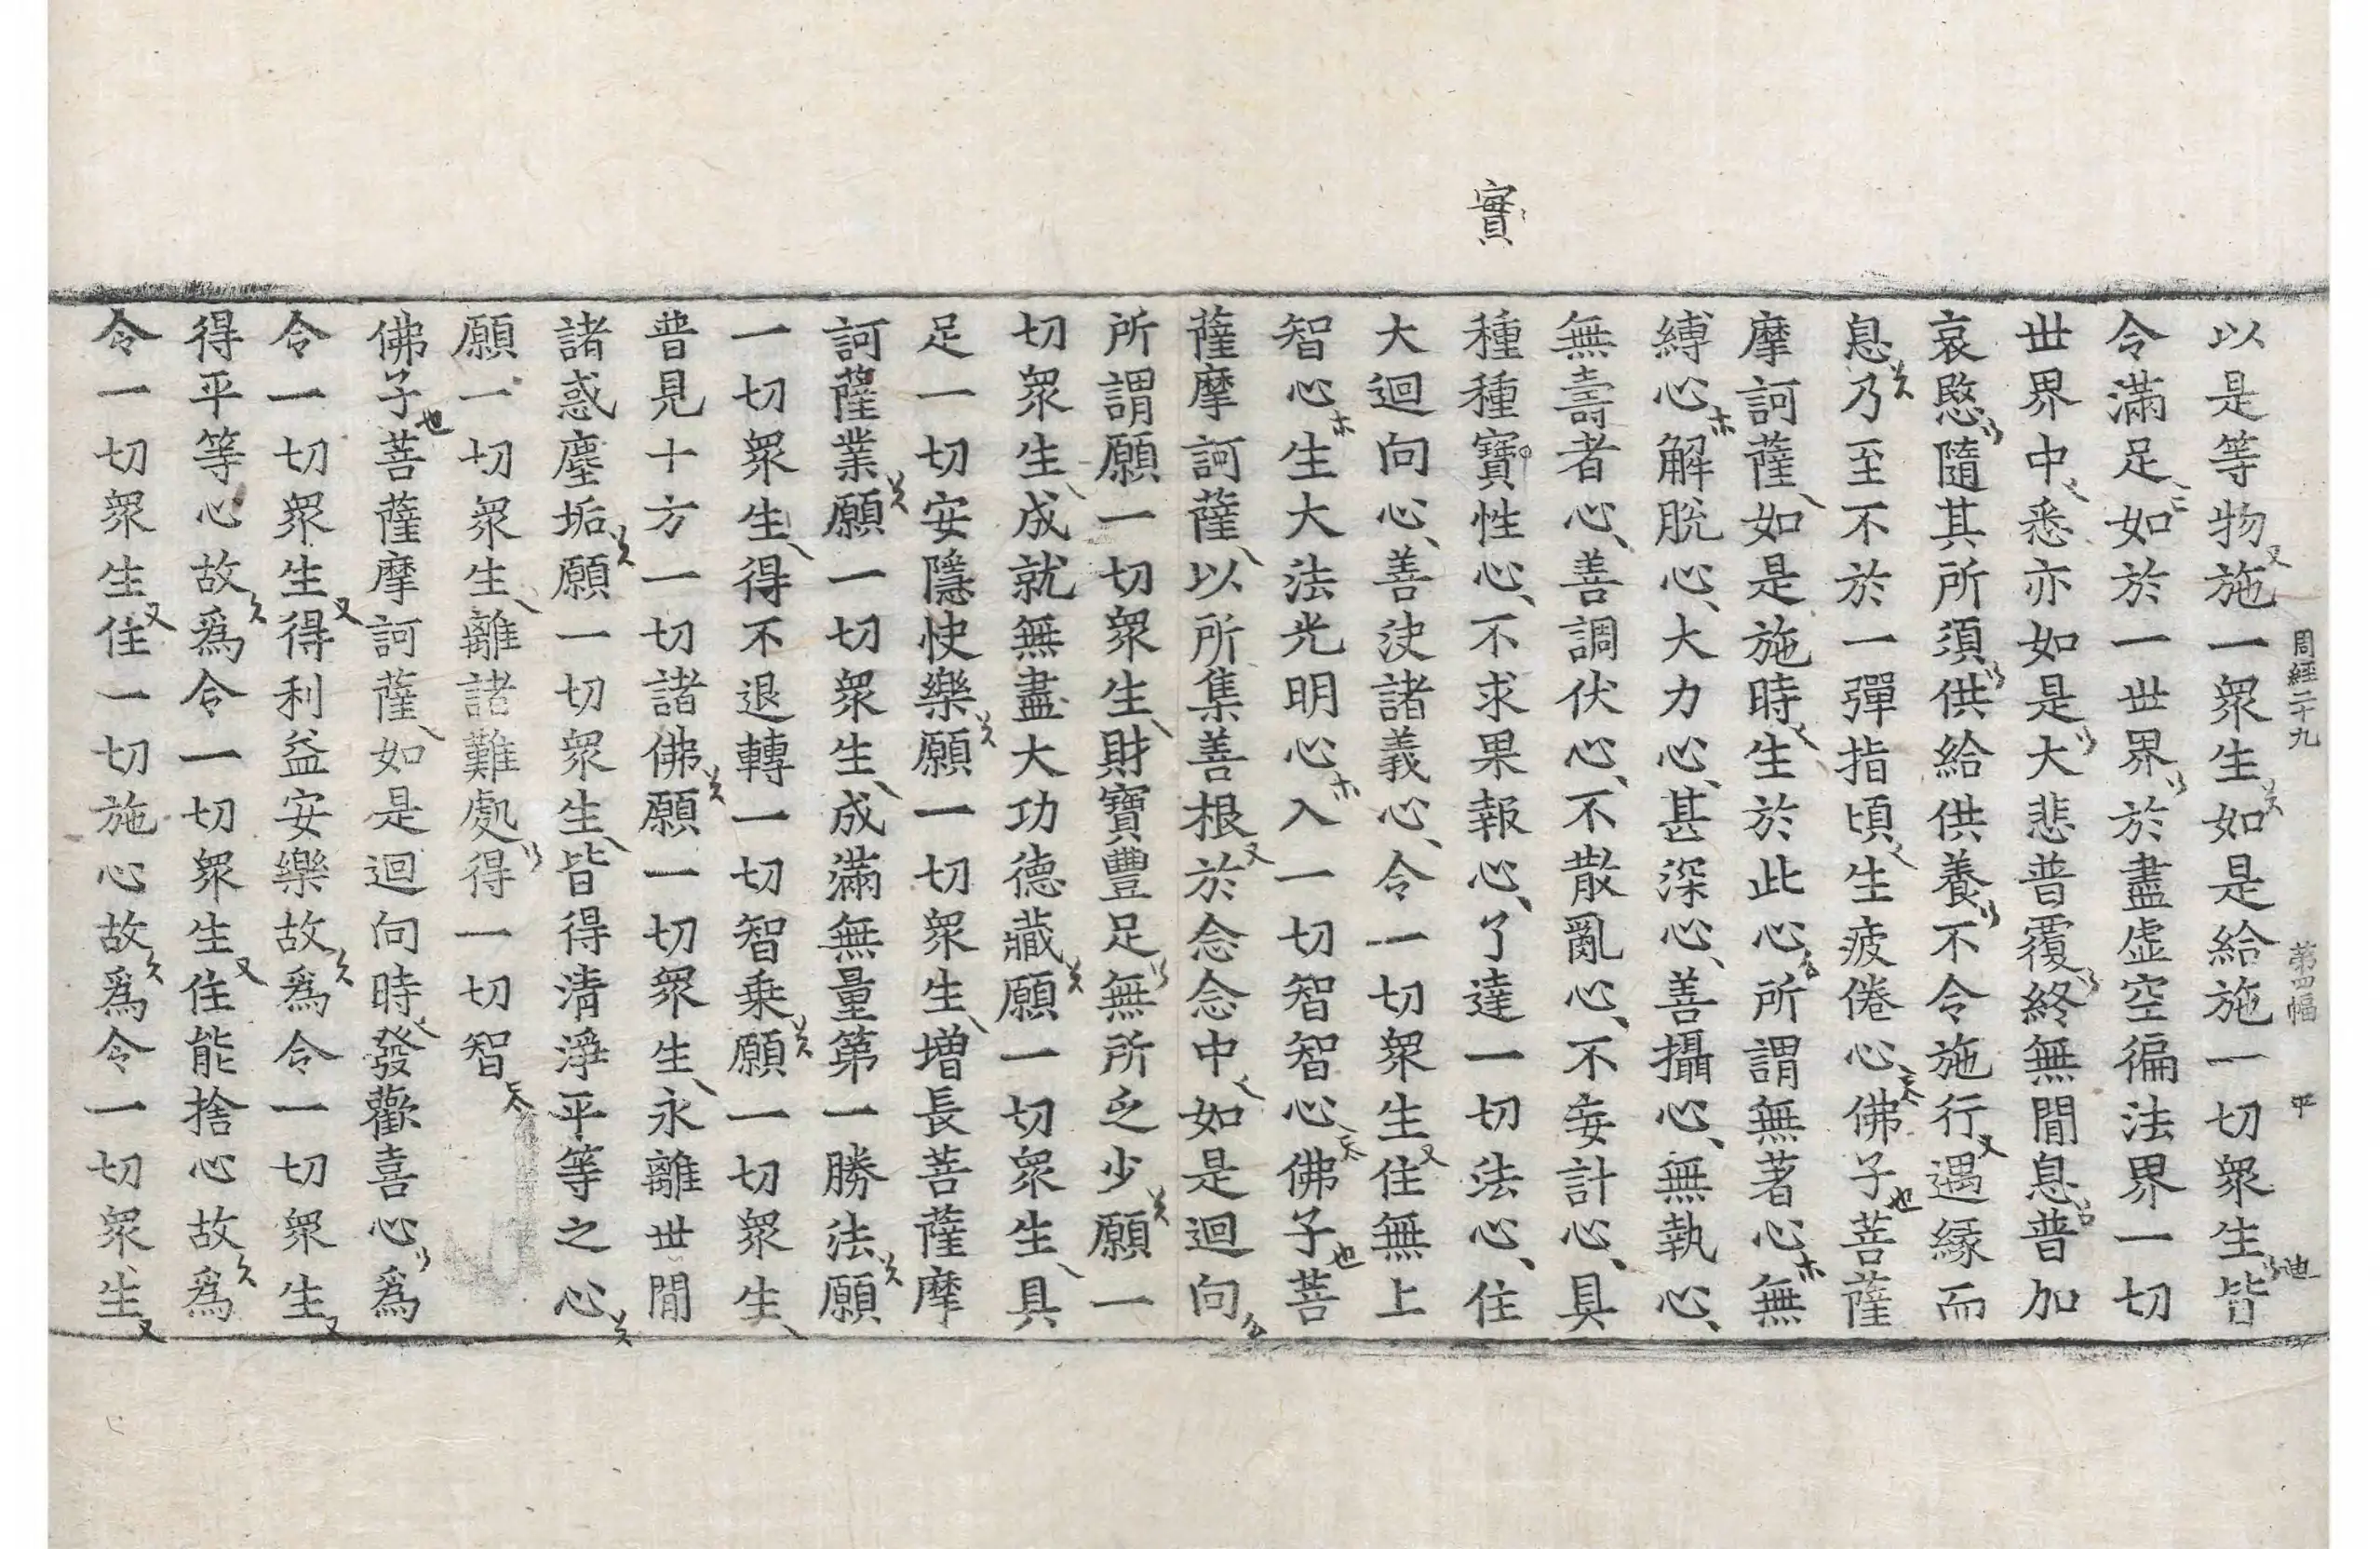 實
周經二十九 第四幅 平 迪
以是等物施一衆生如是給施一切衆生皆
令滿足如於一世界於盡虛空徧法界一切
世界中悉亦如是大悲普覆終無閒息普加
哀愍隨其所須供給供養不令施行遇緣而
息乃至不於一彈指頃生疲倦心佛子菩薩
摩訶薩如是施時生於此心所謂無著心無
縛心解脫心大力心甚深心善攝心無執心
無壽者心善調伏心不散亂心不妄計心具
種種寶性心不求果報心了達一切法心住
大迴向心善決諸義心令一切衆生住無上
智心生大法光明心入一切智智心佛子菩
薩摩訶薩以所集善根於念念中如是迴向
所謂願一切衆生財寶豐足無所乏少願一
切衆生成就無盡大功德藏願一切衆生具
足一切安隱快樂願一切衆生增長菩薩摩
訶薩業願一切衆生成滿無量第一勝法願
一切衆生得不退轉一切智乘願一切衆生
普見十方一切諸佛願一切衆生永離世閒
諸惑塵垢願一切衆生皆得清淨平等之心
願一切衆生離諸難處得一切智
佛子菩薩摩訶薩如是迴向時發歡喜心爲
令一切衆生得利益安樂故爲令一切衆生
得平等心故爲令一切衆生住能捨心故爲
令一切衆生住一切施心故爲令一切衆生